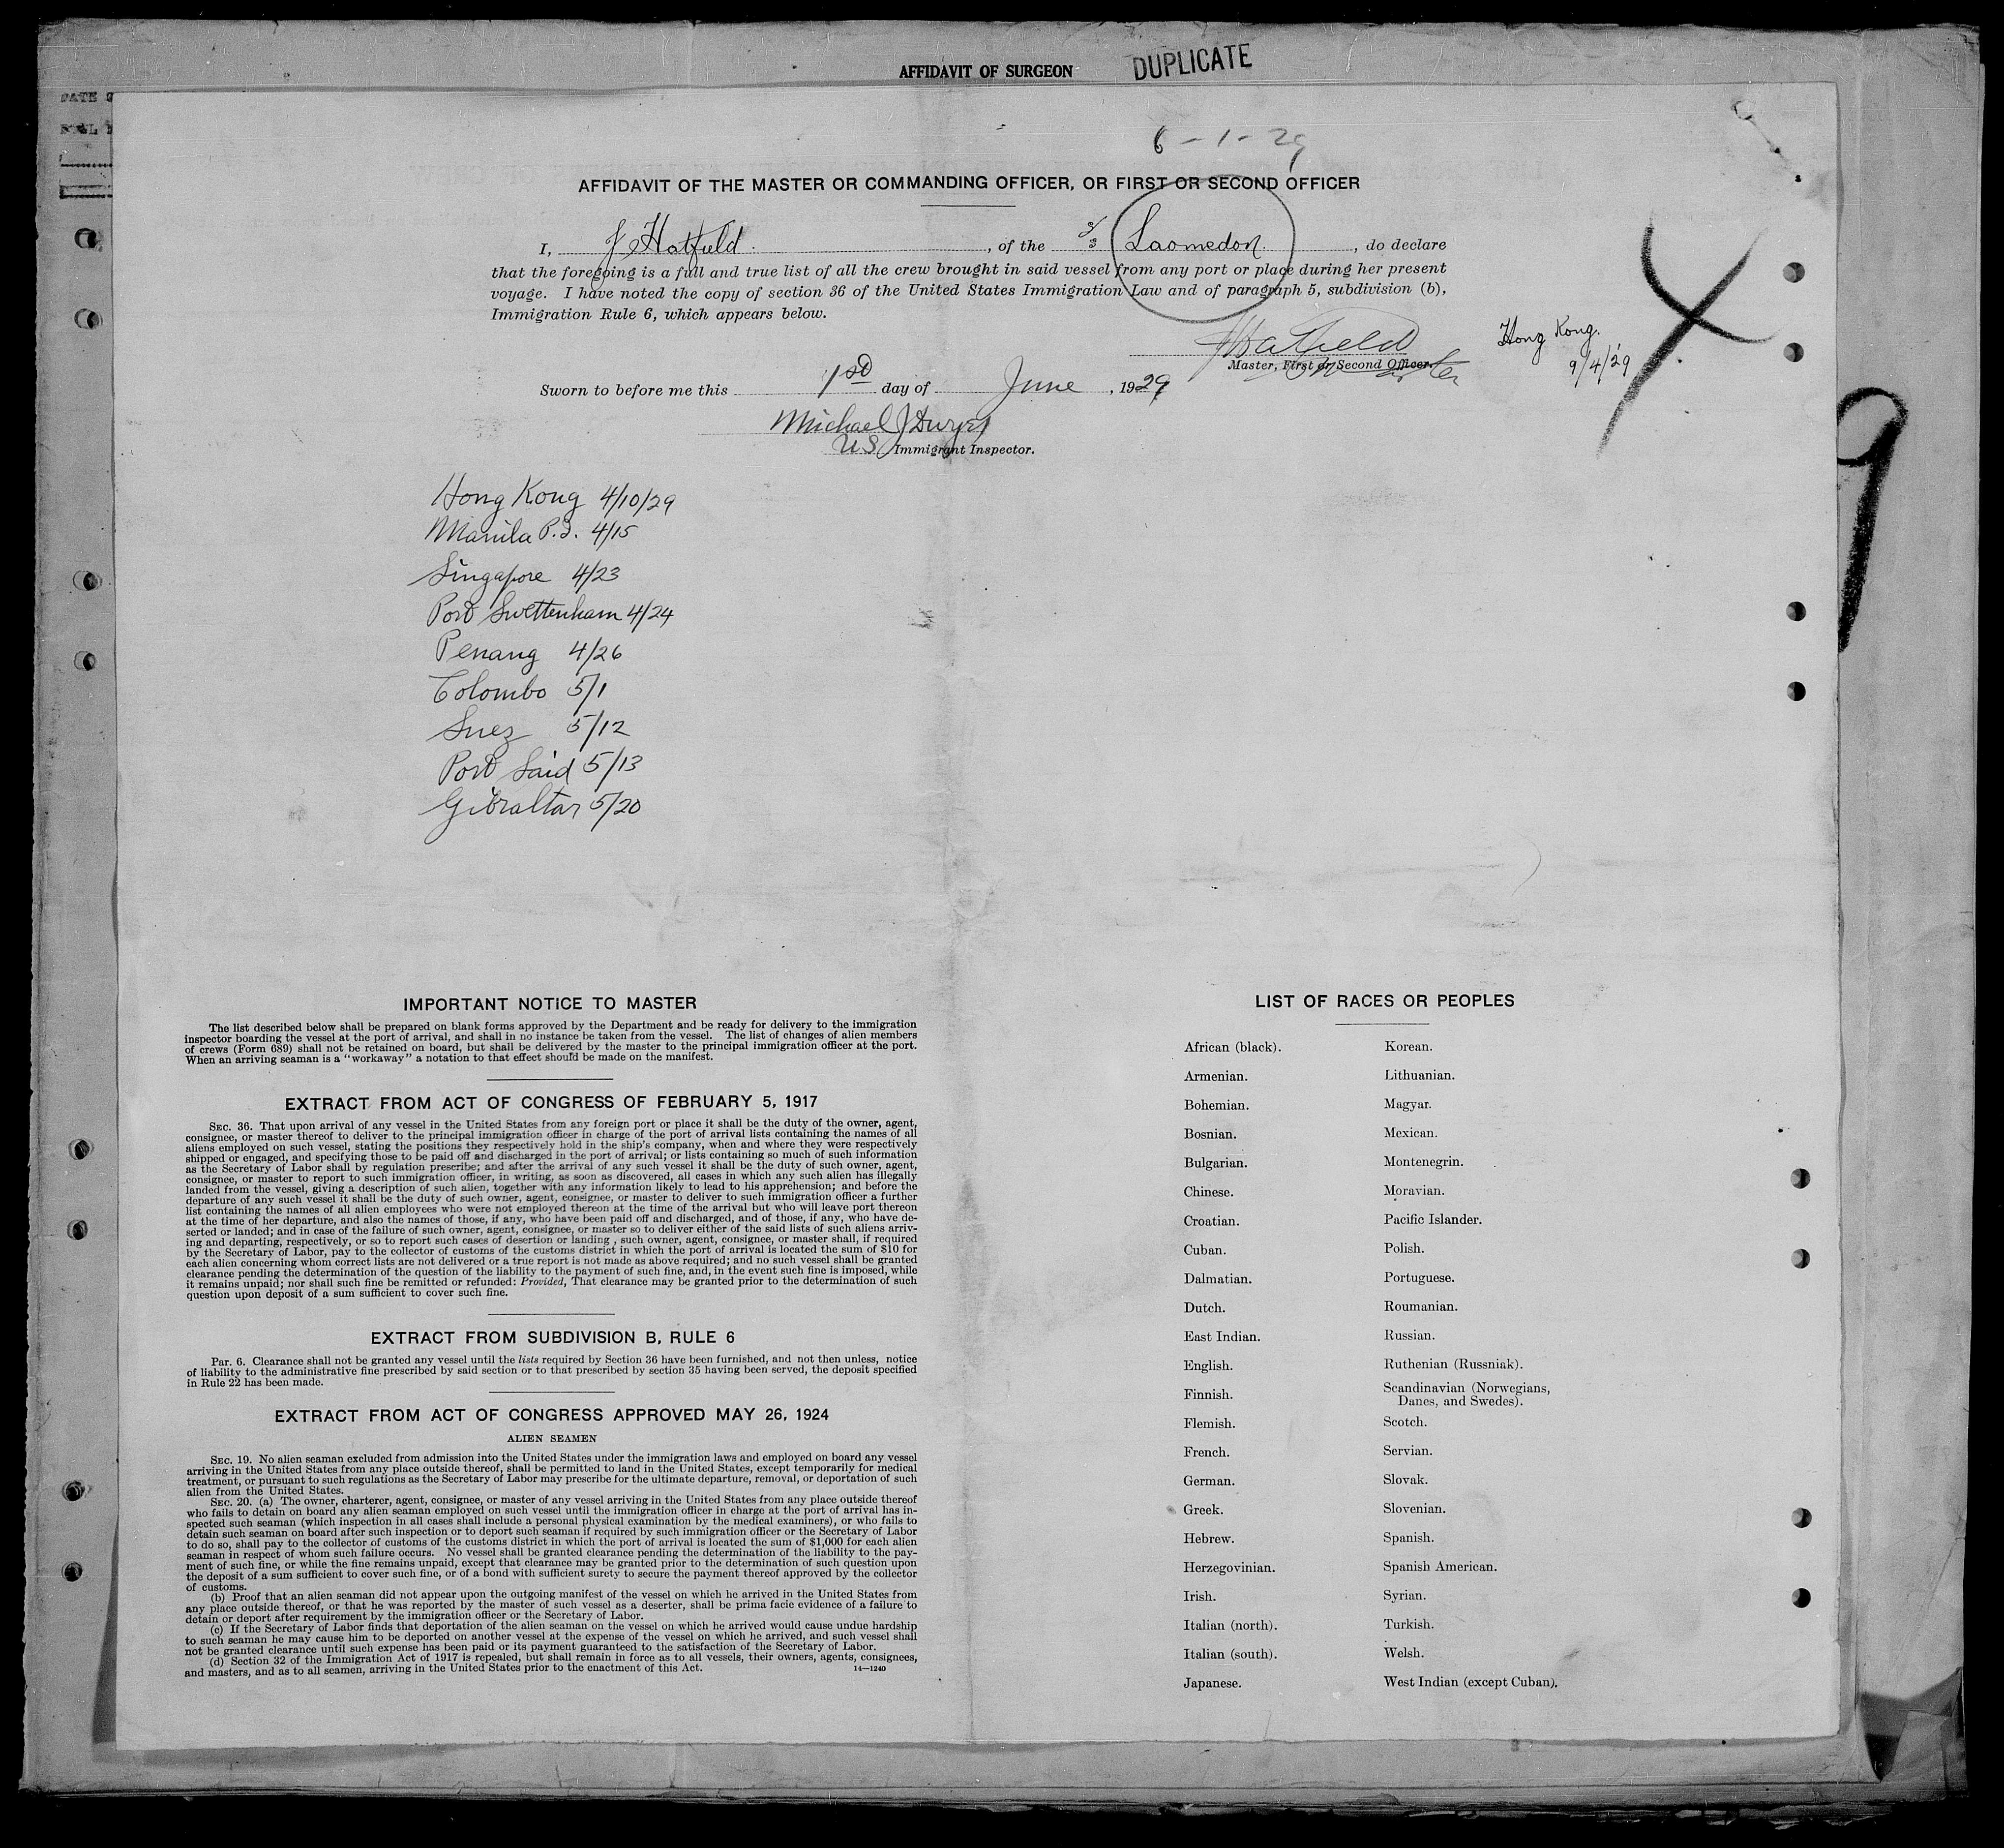 AFFIDAVIT OF SURGEON
DUPLICATE
6-1-29
AFFIDAVIT OF THE MASTER OR COMMANDING OFFICER, OR FIRST OR SECOND OFFICER
I, J Hatfield, of the S/S Laomedon, do declare
that the foregoing is a full and true list of all the crew brought in said vessel from any port or place during her present
voyage. I have noted the copy of section 36 of the United States Immigration Law and of paragraph 5, subdivision (b),
Immigration Rule 6, which appears below.
J Hatfield
Master, First or Second Officer.
Hong Kong.
9/4/29
Sworn to before me this 1st day of June, 1929
Michael J Dwyer
US Immigrant Inspector.
Hong Kong 4/10/29
Manila P.I. 4/15
Singapore 4/23
Port Swettenham 4/24
Penang 4/26
Colombo 5/1
Suez 5/12
Port Said 5/13
Gibraltar 5/20
9
IMPORTANT NOTICE TO MASTER
The list described below shall be prepared on blank forms approved by the Department and be ready for delivery to the immigration
inspector boarding the vessel at the port of arrival, and shall in no instance be taken from the vessel. The list of changes of alien members
of crews (Form 689) shall not be retained on board, but shall be delivered by the master to the principal immigration officer at the port.
When an arriving seaman is a "workaway" a notation to that effect should be made on the manifest.
EXTRACT FROM ACT OF CONGRESS OF FEBRUARY 5, 1917
SEC. 36. That upon arrival of any vessel in the United States from any foreign port or place it shall be the duty of the owner, agent,
consignee, or master thereof to deliver to the principal immigration officer in charge of the port of arrival lists containing the names of all
aliens employed on such vessel, stating the positions they respectively hold in the ship's company, when and where they were respectively
shipped or engaged, and specifying those to be paid off and discharged in the port of arrival; or lists containing so much of such information
as the Secretary of Labor shall by regulation prescribe; and after the arrival of any such vessel it shall be the duty of such owner, agent,
consignee, or master to report to such immigration officer, in writing, as soon as discovered, all cases in which any such alien has illegally
landed from the vessel, giving a description of such alien, together with any information likely to lead to his apprehension; and before the
departure of any such vessel it shall be the duty of such owner, agent, consignee, or master to deliver to such immigration officer a further
list containing the names of all alien employees who were not employed thereon at the time of the arrival but who will leave port thereon
at the time of her departure, and also the names of those, if any, who have been paid off and discharged, and of those, if any, who have de-
serted or landed; and in case of the failure of such owner, agent, consignee, or master so to deliver either of the said lists of such aliens arriv-
ing and departing, respectively, or so to report such cases of desertion or landing , such owner, agent, consignee, or master shall, if required
by the Secretary of Labor, pay to the collector of customs of the customs district in which the port of arrival is located the sum of $10 for
each alien concerning whom correct lists are not delivered or a true report is not made as above required; and no such vessel shall be granted
clearance pending the determination of the question of the liability to the payment of such fine, and, in the event such fine is imposed, while
it remains unpaid; nor shall such fine be remitted or refunded: Provided, That clearance may be granted prior to the determination of such
question upon deposit of a sum sufficient to cover such fine.
EXTRACT FROM SUBDIVISION B, RULE 6
Par. 6. Clearance shall not be granted any vessel until the lists required by Section 36 have been furnished, and not then unless, notice
of liability to the administrative fine prescribed by said section or to that prescribed by section 35 having been served, the deposit specified
in Rule 22 has been made.
EXTRACT FROM ACT OF CONGRESS APPROVED MAY 26, 1924
ALIEN SEAMEN
SEC. 19. No alien seaman excluded from admission into the United States under the immigration laws and employed on board any vessel
arriving in the United States from any place outside thereof, shall be permitted to land in the United States, except temporarily for medical
treatment, or pursuant to such regulations as the Secretary of Labor may prescribe for the ultimate departure, removal, or deportation of such
alien from the United States.
SEC. 20. (a) The owner, charterer, agent, consignee, or master of any vessel arriving in the United States from any place outside thereof
who fails to detain on board any alien seaman employed on such vessel until the immigration officer in charge at the port of arrival has in-
spected such seaman (which inspection in all cases shall include a personal physical examination by the medical examiners), or who fails to
detain such seaman on board after such inspection or to deport such seaman if required by such immigration officer or the Secretary of Labor
to do so, shall pay to the collector of customs of the customs district in which the port of arrival is located the sum of $1,000 for each alien
seaman in respect of whom such failure occurs. No vessel shall be granted clearance pending the determination of the liability to the pay-
ment of such fine, or while the fine remains unpaid, except that clearance may be granted prior to the determination of such question upon
the deposit of a sum sufficient to cover such fine, or of a bond with sufficient surety to secure the payment thereof approved by the collector
of customs.
(b) Proof that an alien seaman did not appear upon the outgoing manifest of the vessel on which he arrived in the United States from
any place outside thereof, or that he was reported by the master of such vessel as a deserter, shall be prima facie evidence of a failure to
detain or deport after requirement by the immigration officer or the Secretary of Labor.
(c) If the Secretary of Labor finds that deportation of the alien seaman on the vessel on which he arrived would cause undue hardship
to such seaman he may cause him to be deported on another vessel at the expense of the vessel on which he arrived, and such vessel shall
not be granted clearance until such expense has been paid or its payment guaranteed to the satisfaction of the Secretary of Labor.
(d) Section 32 of the Immigration Act of 1917 is repealed, but shall remain in force as to all vessels, their owners, agents, consignees,
and masters, and as to all seamen, arriving in the United States prior to the enactment of this Act.
14—1240
LIST OF RACES OR PEOPLES
African (black).
Armenian.
Bohemian.
Bosnian.
Bulgarian.
Chinese.
Croatian.
Cuban.
Dalmatian.
Dutch.
East Indian.
English.
Finnish.
Flemish.
French.
German.
Greek.
Hebrew.
Herzegovinian.
Irish.
Italian (north).
Italian (south).
Japanese.
Korean.
Lithuanian.
Magyar.
Mexican.
Montenegrin.
Moravian.
Pacific Islander.
Polish.
Portuguese.
Roumanian.
Russian.
Ruthenian (Russniak).
Scandinavian (Norwegians,
Danes, and Swedes).
Scotch.
Servian.
Slovak.
Slovenian.
Spanish.
Spanish American.
Syrian.
Turkish.
Welsh.
West Indian (except Cuban).